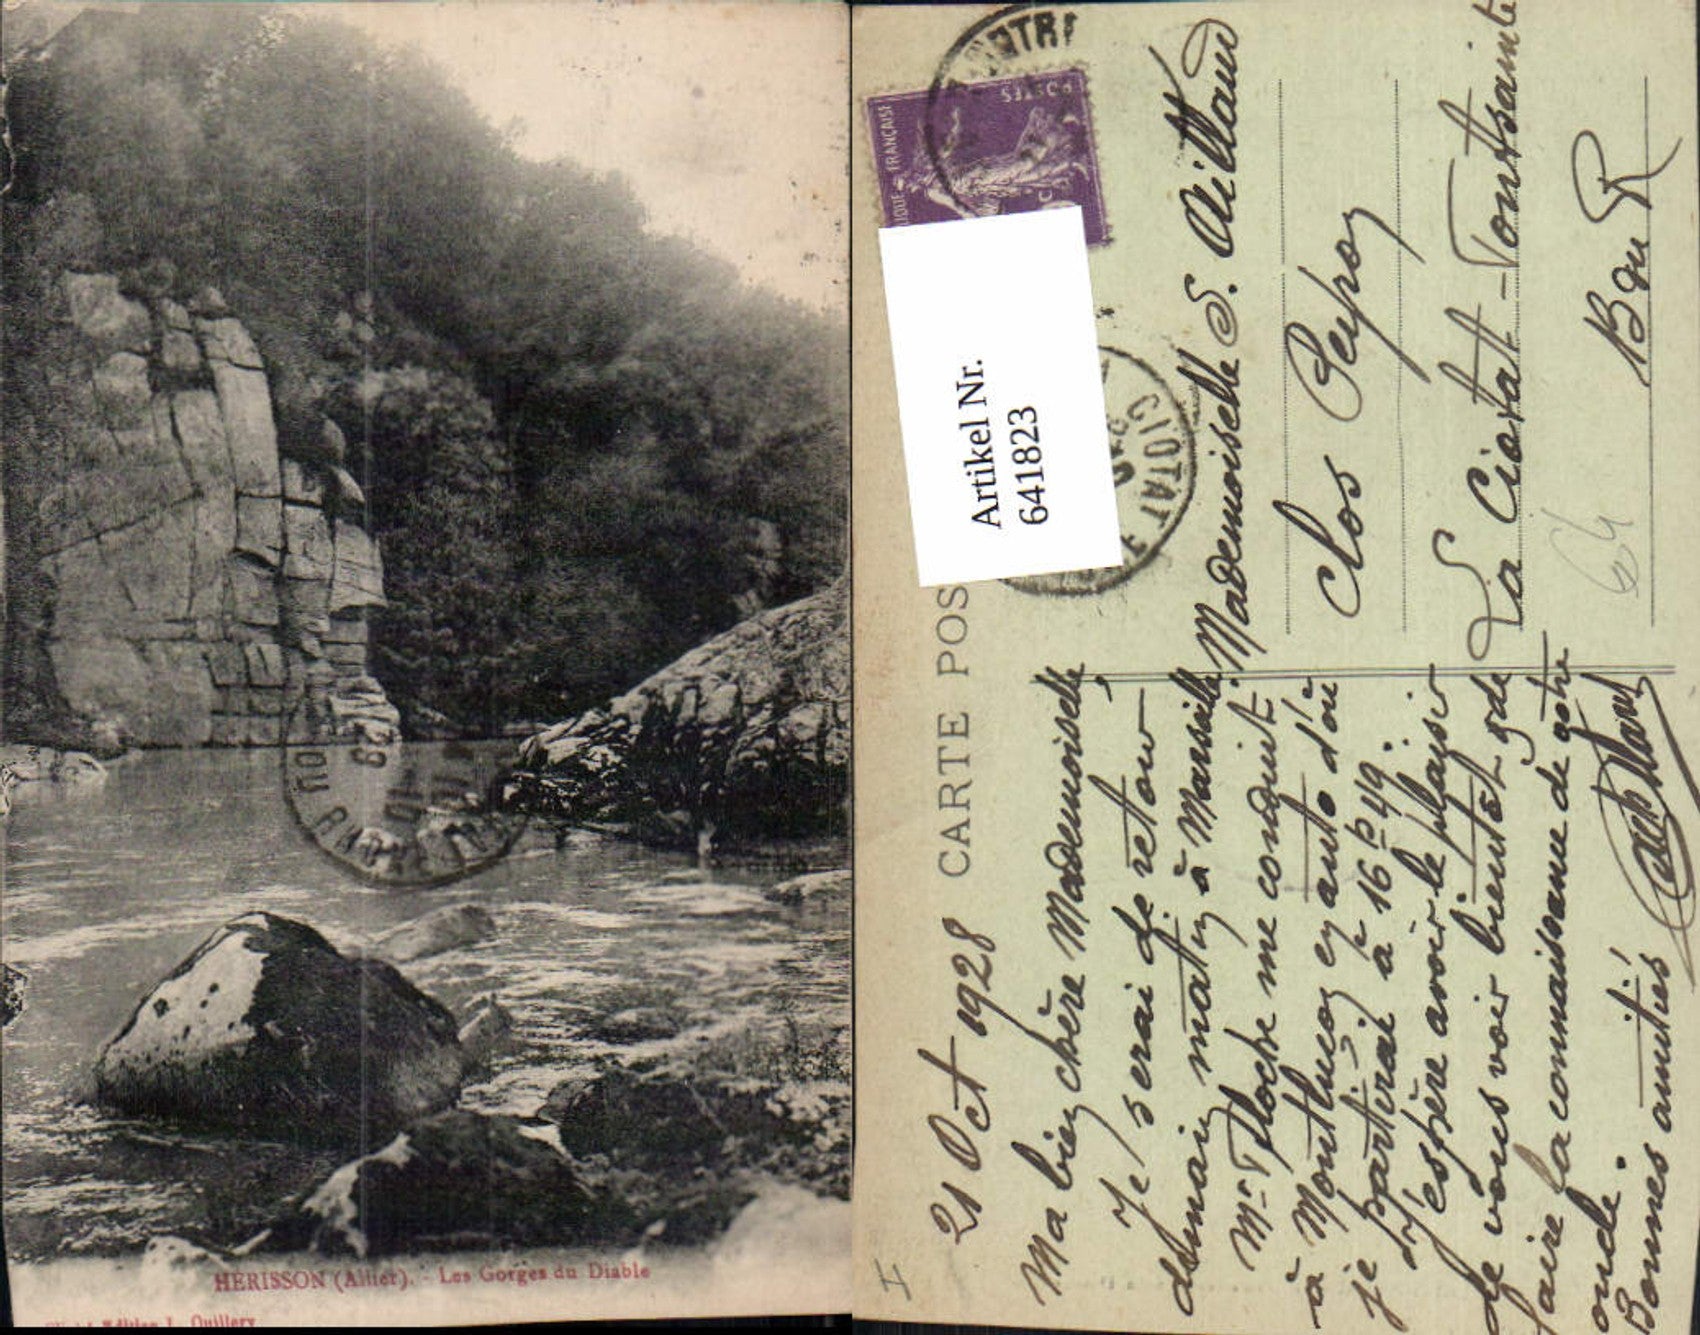 HERISSON (Allier). - Les Gorges du Diable
Cliché Edition L. Quillery
CARTE POS
POSTES
FRANÇAISE
Artikel Nr.
641823
CIOTAT
21 Oct 1928
Ma bien chère Mademoiselle,
Je serai de retour
demain matin à Marseille.
Mr Floche me conduit
à Montluçon en auto d'où
je partirai à 16h49.
J'espère avoir le plaisir
de vous voir bientôt & de
faire la connaissance de votre
oncle.
Bonnes amitiés
Mademoiselle S. Aillaud
Clos Peyron
La Ciotat - Toutsainte
B du R
64